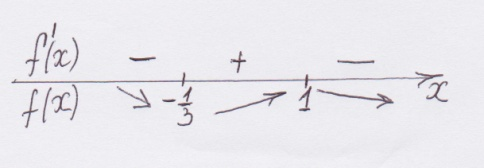 f'(x) − + −
f(x) -1/3 1 x